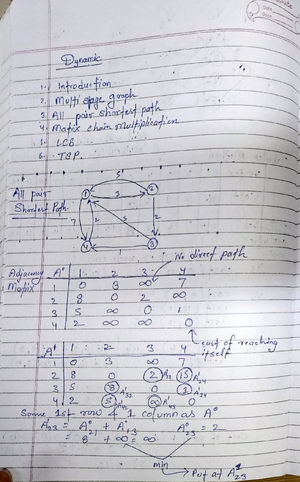 Dynamic
1. Introduction
2. Multi stage graph
3. All pair Shortest path
4. Matix chain multiplication
5. LCS
6. TSP.
All pair
Shortest Path.
1 2
3
8
7 2 5 2
4 3
1
No direct path
Adjacency
Matrix
A⁰ 1 2 3 4
1 0 3 ∞ 7
2 8 0 2 ∞
3 5 ∞ 0 1
4 2 ∞ ∞ 0
cost of reaching
itself
A¹ 1 2 3 4
1 0 3 ∞ 7
2 8 0 2 15
3 5 8 0 1
4 2 5 ∞ 0
Same 1st row & 1 column as A⁰
A₂₃ = A⁰₂₁ + A⁰₁₃ A⁰₂₃ = 2
= 8 + ∞ = ∞
min
Put at A¹₂₃